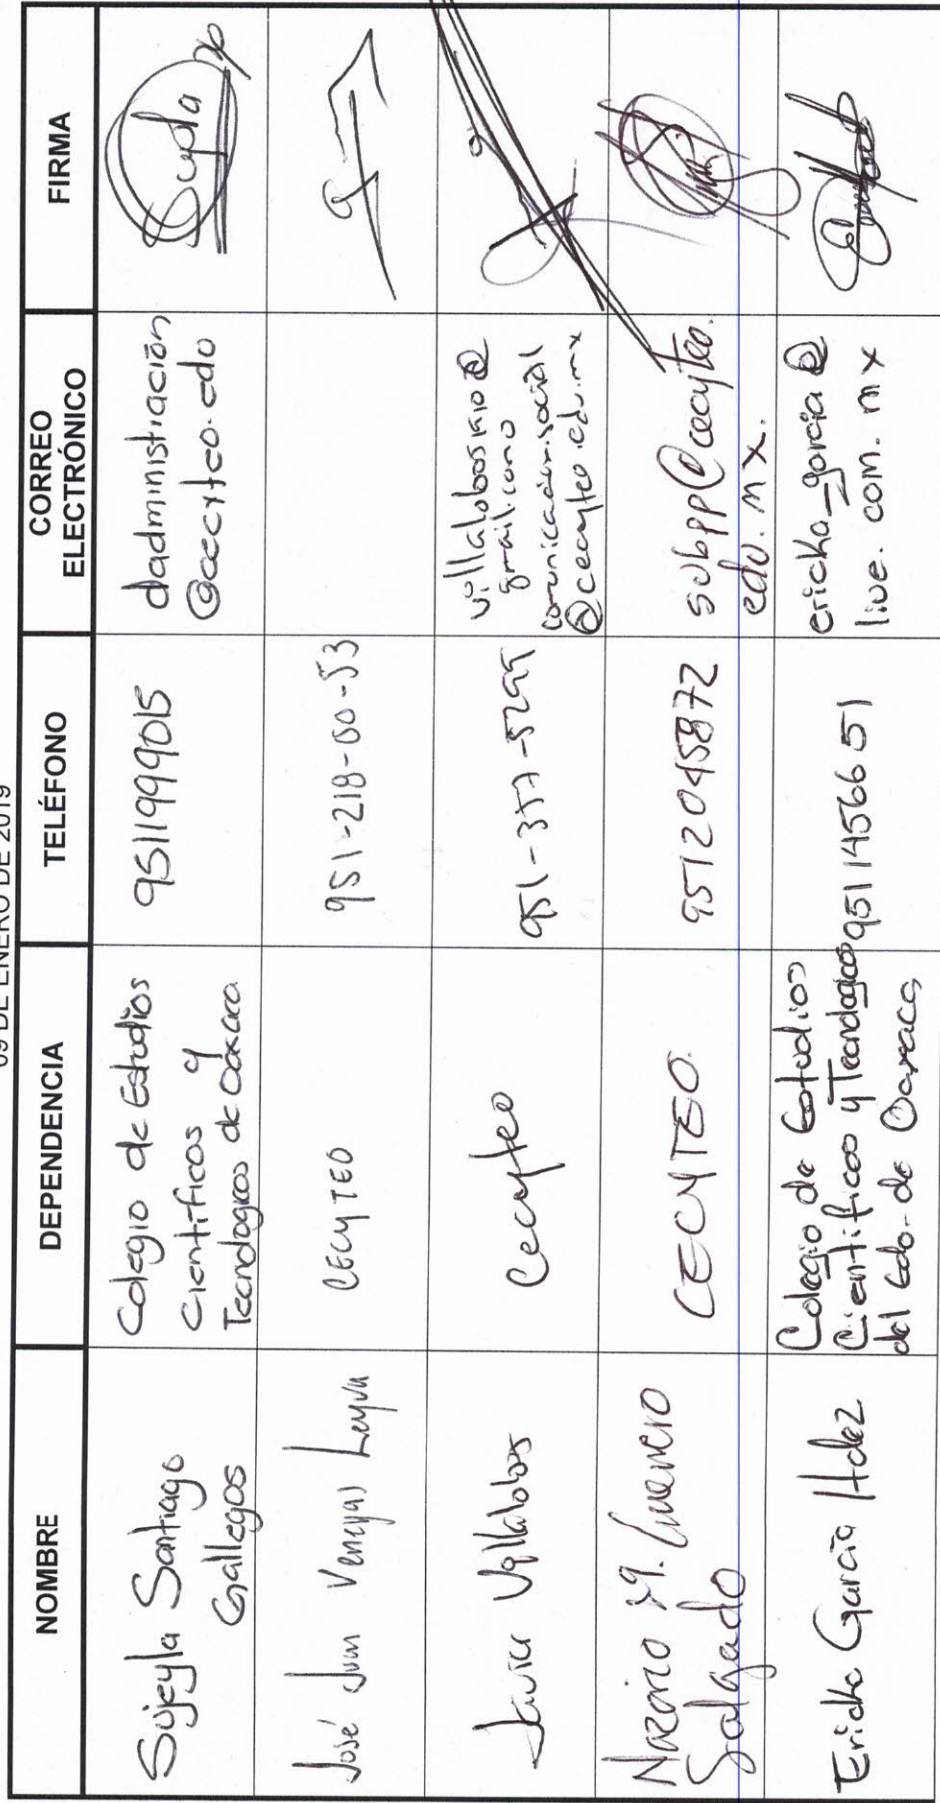 09 DE ENERO DE 2019
NOMBRE
DEPENDENCIA
TELÉFONO
CORREO
ELECTRÓNICO
FIRMA
Sujeyla Santiago
Gallegos
Colegio de Estudios
Científicos y
Tecnologicos de Oaxaca
9511999015
dadministración
@cecyteo.edo
José Juan Venegas Leyva
CECyTEO
951-218-00-53
Javier Villalobos
Cecyteo
951-377-
villaloboskio@
gmail.como
comunicacion.social
@cecyteo.edu.mx
Nazario Guerrero
Salgado
CECYTEO.
9512045872
subpp@cecyteo.
edu.mx.
Ericka García Hdez
Colegio de Estudios
Científicos y Tecnologicos
del Edo. de Oaxaca
9511456651
ericka_garcia@
live.com.mx